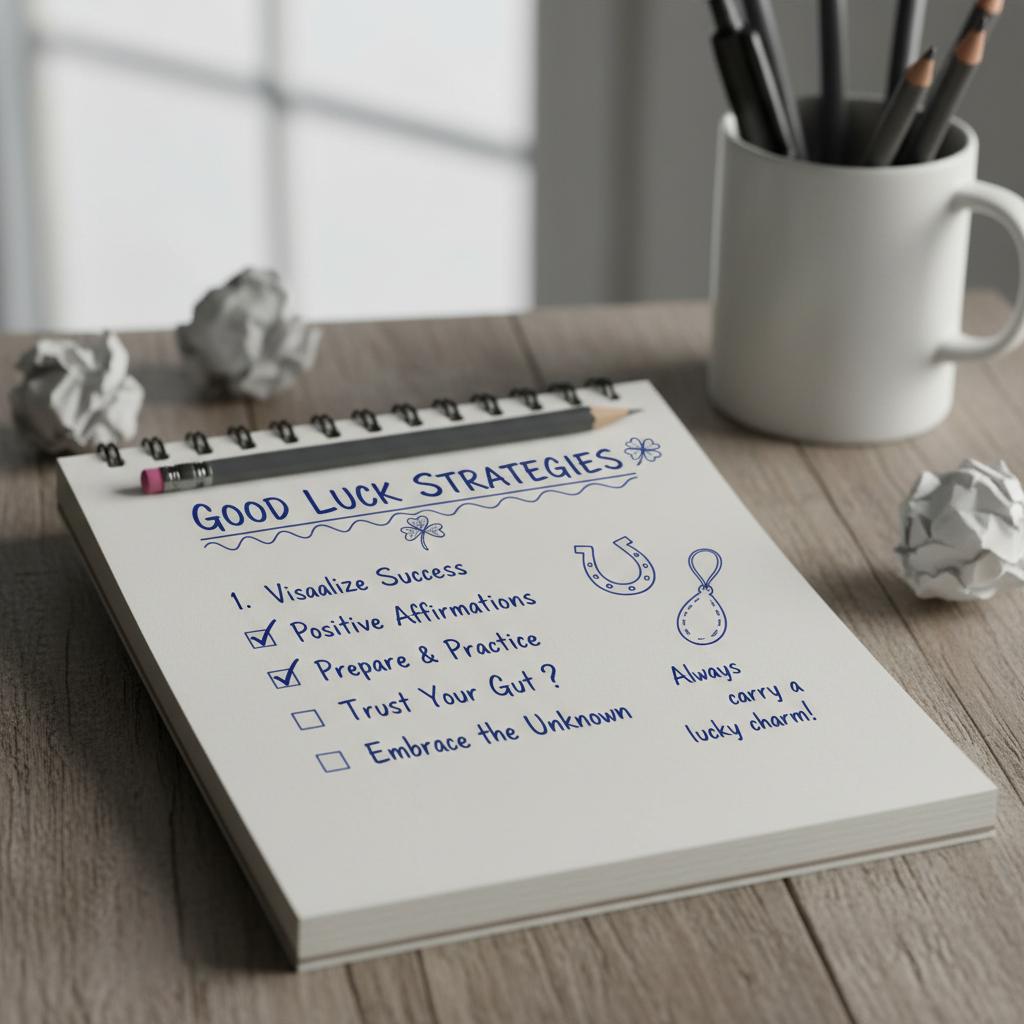 GOOD LUCK STRATEGIES
1. Visaalize Success
Positive Affirmations
Prepare & Practice
Trust Your Gut ?
Embrace the Unknown
Always
carry a
lucky charm!